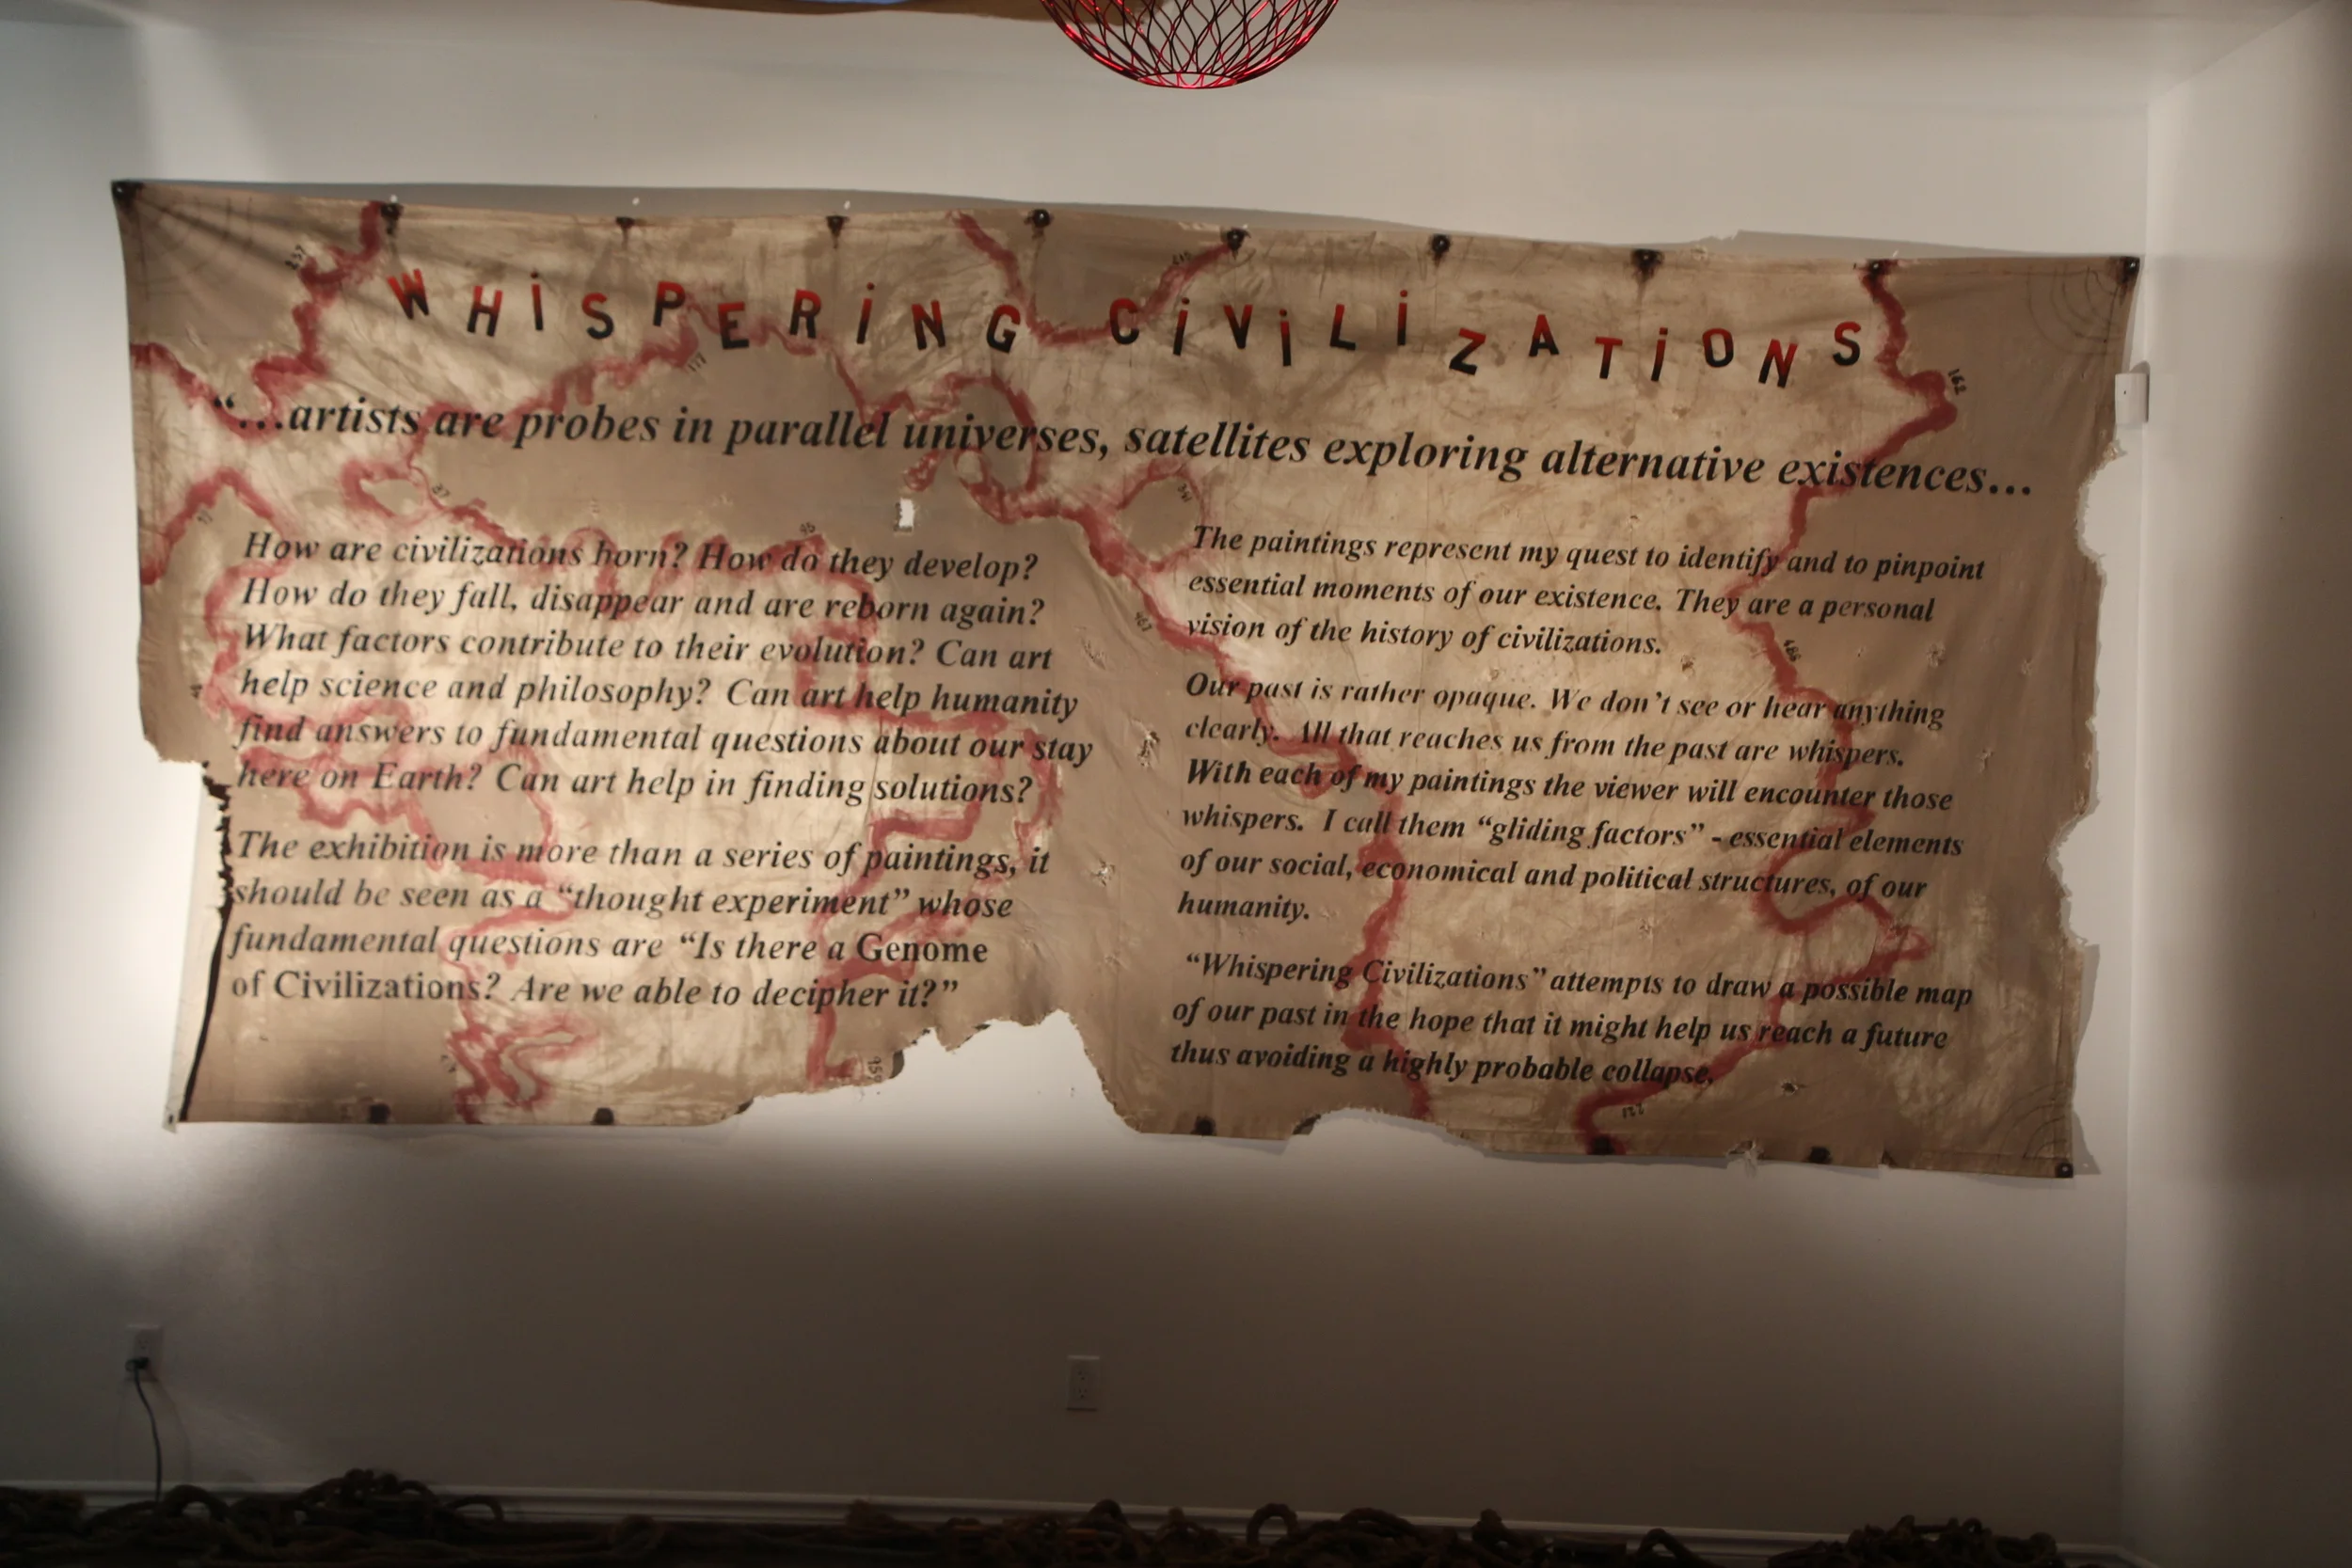 WHiSPERiNG CiViLiZATiONS
“...artists are probes in parallel universes, satellites exploring alternative existences...
How are civilizations born? How do they develop?
How do they fall, disappear and are reborn again?
What factors contribute to their evolution? Can art
help science and philosophy? Can art help humanity
find answers to fundamental questions about our stay
here on Earth? Can art help in finding solutions?
The exhibition is more than a series of paintings, it
should be seen as a “thought experiment” whose
fundamental questions are “Is there a Genome
of Civilizations? Are we able to decipher it?”
The paintings represent my quest to identify and to pinpoint
essential moments of our existence. They are a personal
vision of the history of civilizations.
Our past is rather opaque. We don’t see or hear anything
clearly. All that reaches us from the past are whispers.
With each of my paintings the viewer will encounter those
whispers. I call them “gliding factors” - essential elements
of our social, economical and political structures, of our
humanity.
“Whispering Civilizations” attempts to draw a possible map
of our past in the hope that it might help us reach a future
thus avoiding a highly probable collapse.
237
117
162
87
45
341
467
486
950
221